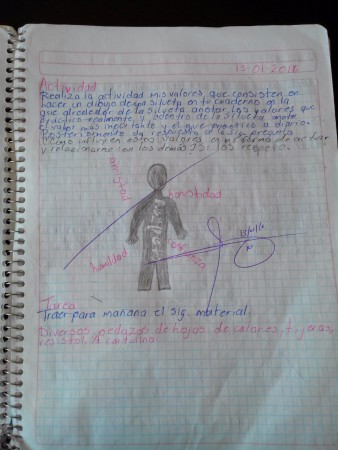 13-01-2016
Actividad
Realiza la actividad mis valores, que consisten en
hacer un dibujo de su silueta en tu cuaderno en la
que alrededor de la silueta anotar los valores que
practico realmente y adentro de la silueta anote
el valor mas importante y el que practico a diario.
Posteriormente da respuesta a la sig. pregunta
¿Como influyen estos valores en mi forma de actuar
y relacionarme con los demás? Si los respeto.
amistad
honestidad
humildad
Tarea
Traer para mañana el sig. material.
Diversos pedazos de hojas de colores, tijeras,
resistol, cartulina